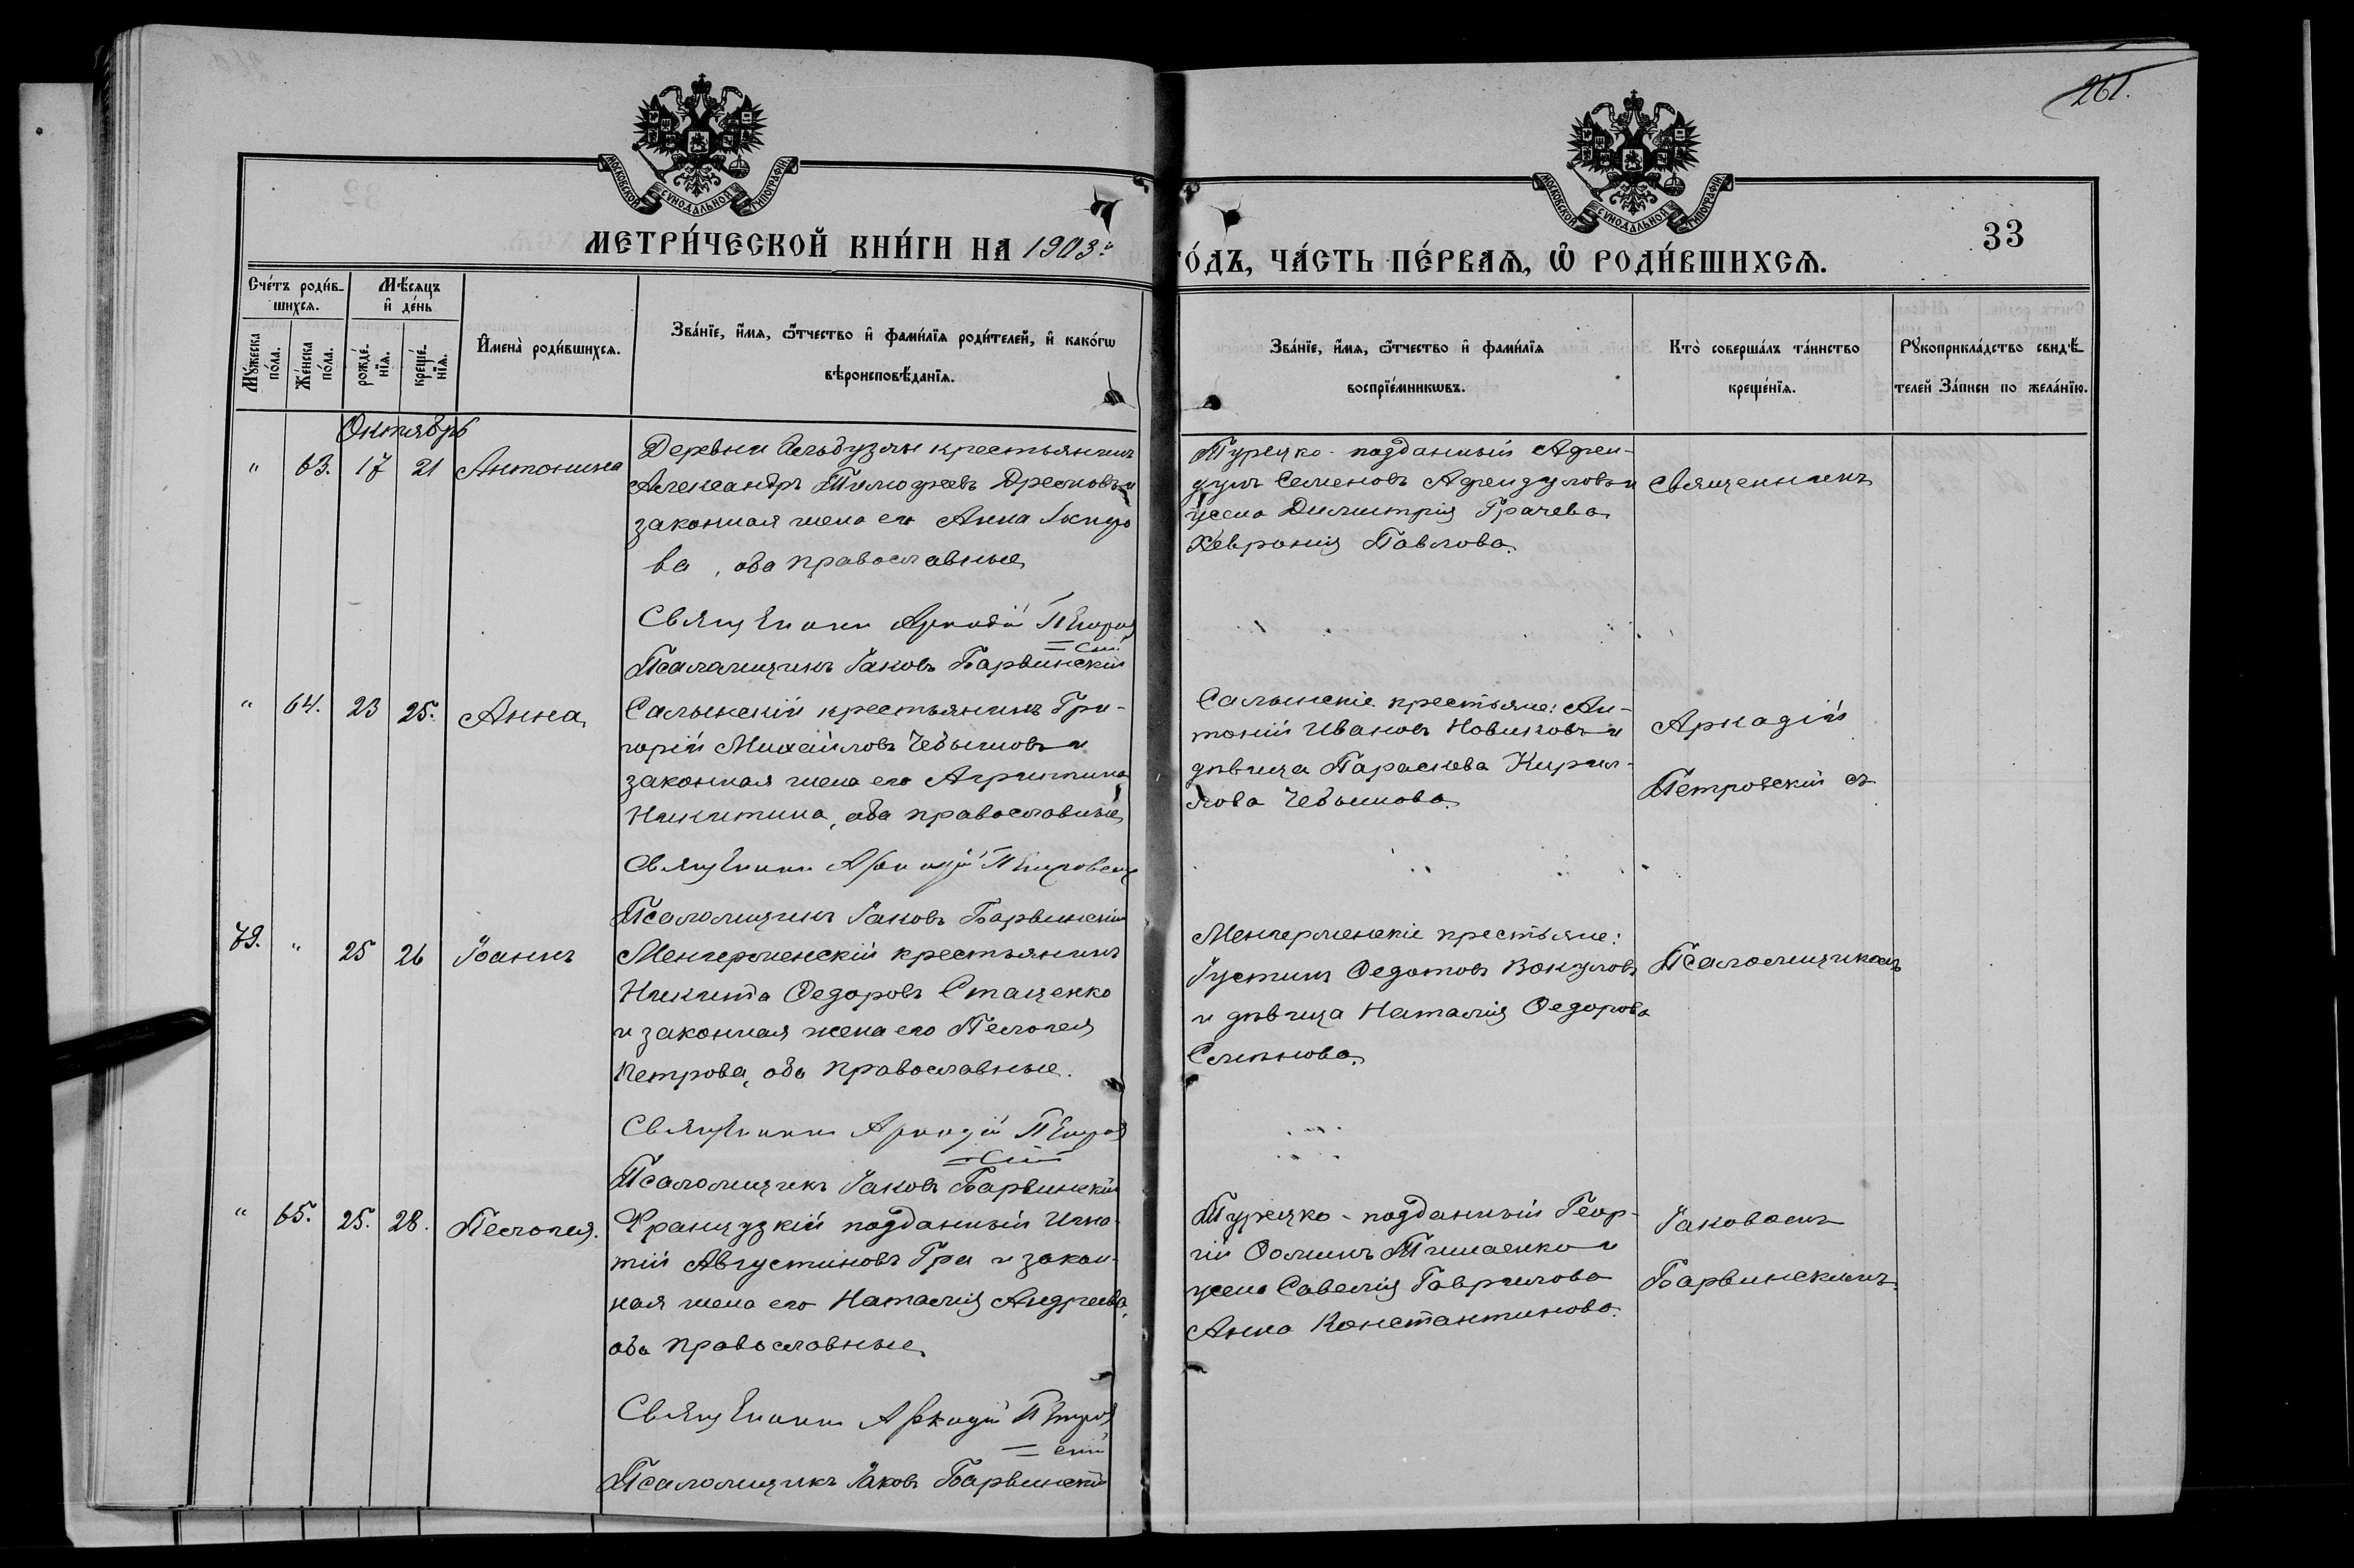 261.
МОСКОВСКОЙ СѴНОДАЛЬНОЙ ТИПОГРАФІИ
МОСКОВСКОЙ СѴНОДАЛЬНОЙ ТИПОГРАФІИ
33
МЕТРИ́ЧЕСКОЙ КНИ́ГИ НА 1903й
ГО́ДЪ, ЧА́СТЬ ПЕ́РВАѦ, Ѡ҆ РОДИ́ВШИХСѦ.
Сче́тъ роди́в-
шихсѧ.
Мѣ́сѧцъ
и҆ де́нь
Мꙋ́жеска
по́ла.
Же́нска
по́ла.
рожде́-
нїѧ.
креще́-
нїѧ.
И҆мена̀ роди́вшихсѧ.
Зва́нїе, и҆́мѧ, ѻ҆́тчество и҆ фами́лїѧ роди́телей, и҆ како́гѡ
вѣроисповѣ́данїѧ.
Зва́нїе, и҆́мѧ, ѻ҆́тчество и҆ фами́лїѧ
воспрїе́мникѡвъ.
Кто̀ соверша́лъ та́инство
креще́нїѧ.
Рꙋкоприкла́дство свидѣ́-
телей За́писи по жела́нїю.
Октябрь
" 63. 17 21 Антонина
Деревни крестьянинъ
Александръ Тимофеевъ и
законная жена его Анна
ва, оба православные
Священникъ Аркадій Петров
=скій
Псаломщикъ Іаковъ Барвинскій
Турецко-подданный
Семеновъ и
жена Димитрія Грачева
Хевронія Павлова.
Священникъ
" 64. 23 25. Анна
Салынскій крестьянинъ Гри-
горій Михайловъ Чебышовъ и
законная жена его Агрипина
Никитина, оба православные
Священникъ Аркадій Петровскій
Псаломщикъ Іаковъ Барвинскій
Салынскіе крестьяне: Ан-
тоній Ивановъ Новиковъ и
дѣвица Параскева Кирил-
лова Чебышова.
Аркадій
Петровскій съ
79. " 25 26 Іоаннъ
крестьянинъ
Никита Ѳедоровъ Стаценко
и законная жена его Пелагея
Петрова, оба православные.
Священникъ Аркадій Петров
=скій
Псаломщикъ Іаковъ Барвинскій
крестьяне:
Іустинъ Ѳедотовъ Вакуловъ
и дѣвица Наталія Ѳедорова
Псаломщикомъ
" 65. 25. 28. Пелагея.
Французкій подданный Игна-
тій Августиновъ Гра и закон-
ная жена его Наталія Андреева,
оба православные
Священникъ Аркадій Петров
=скій
Псаломщикъ Іаковъ Барвинскій
Турецко-подданный Геор-
гій Ѳоминъ и
жена Савелія Гаврилова
Анна Константинова.
Іаковомъ
Барвинскимъ.